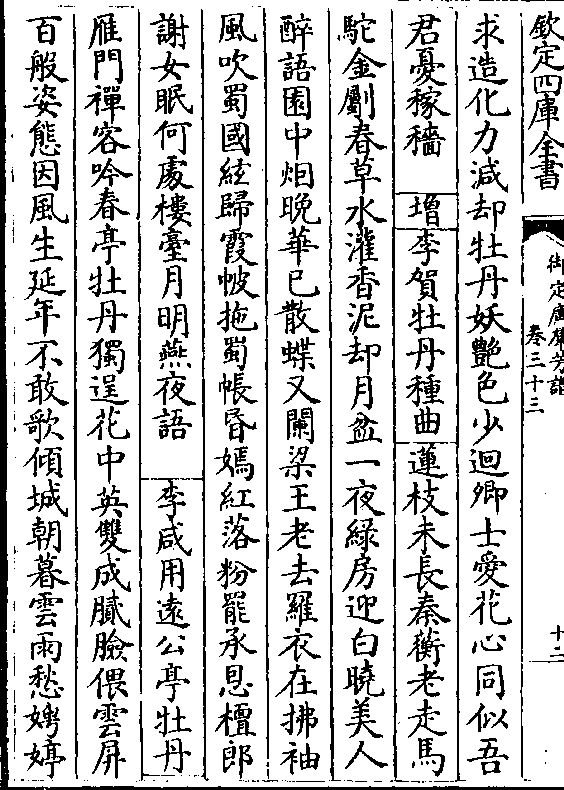 欽定四庫全書
御定廣羣芳譜
卷三十三
十二
求造化力減却牡丹妖艷色少迴卿士愛花心同似吾
君憂稼穡 增李賀牡丹種曲 蓮枝未長秦蘅老走馬
駝金劚春草水灌香泥却月盆一夜緑房迎白曉美人
醉語園中烟晚華已散蝶又闌梁王老去羅衣在拂袖
風吹蜀國絃歸霞帔拖蜀帳昏嫣紅落粉罷承恩檀郎
謝女眠何處樓臺月明燕夜語 李咸用逺公亭牡丹
雁門禪客吟春亭牡丹獨逞花中英雙成膩臉偎雲屏
百般姿態因風生延年不敢歌傾城朝暮雲雨愁娉婷